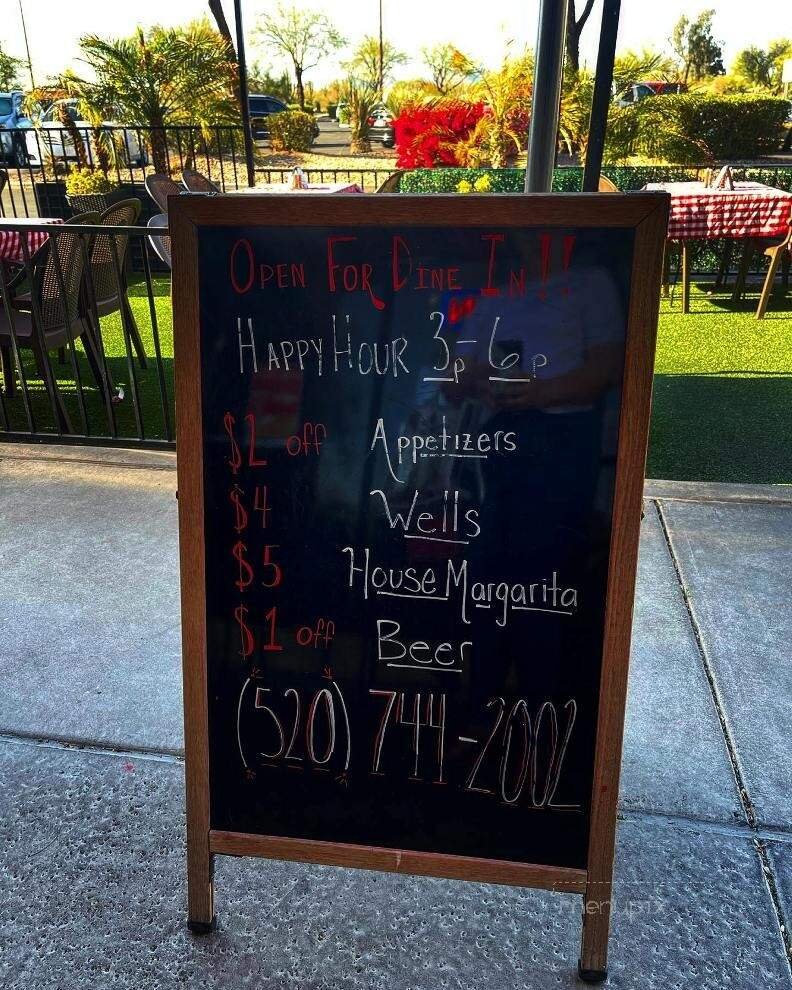 Open For Dine In!!
Happy Hour 3p-6p
$2 off Appetizers
$4 Wells
$5 House Margarita
$1 off Beer
(520) 744-2002
menupix